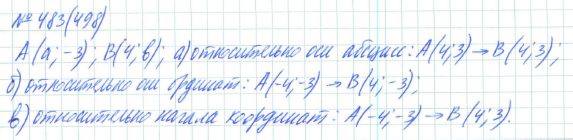 № 483(498)
A(a; -3); B(4; в); а) относительно оси абсцисс: A(4; 3) → B(4; 3);
б) относительно оси ординат: A(-4; -3) → B(4; -3);
в) относительно начала координат: A(-4; -3) → B(4; 3).